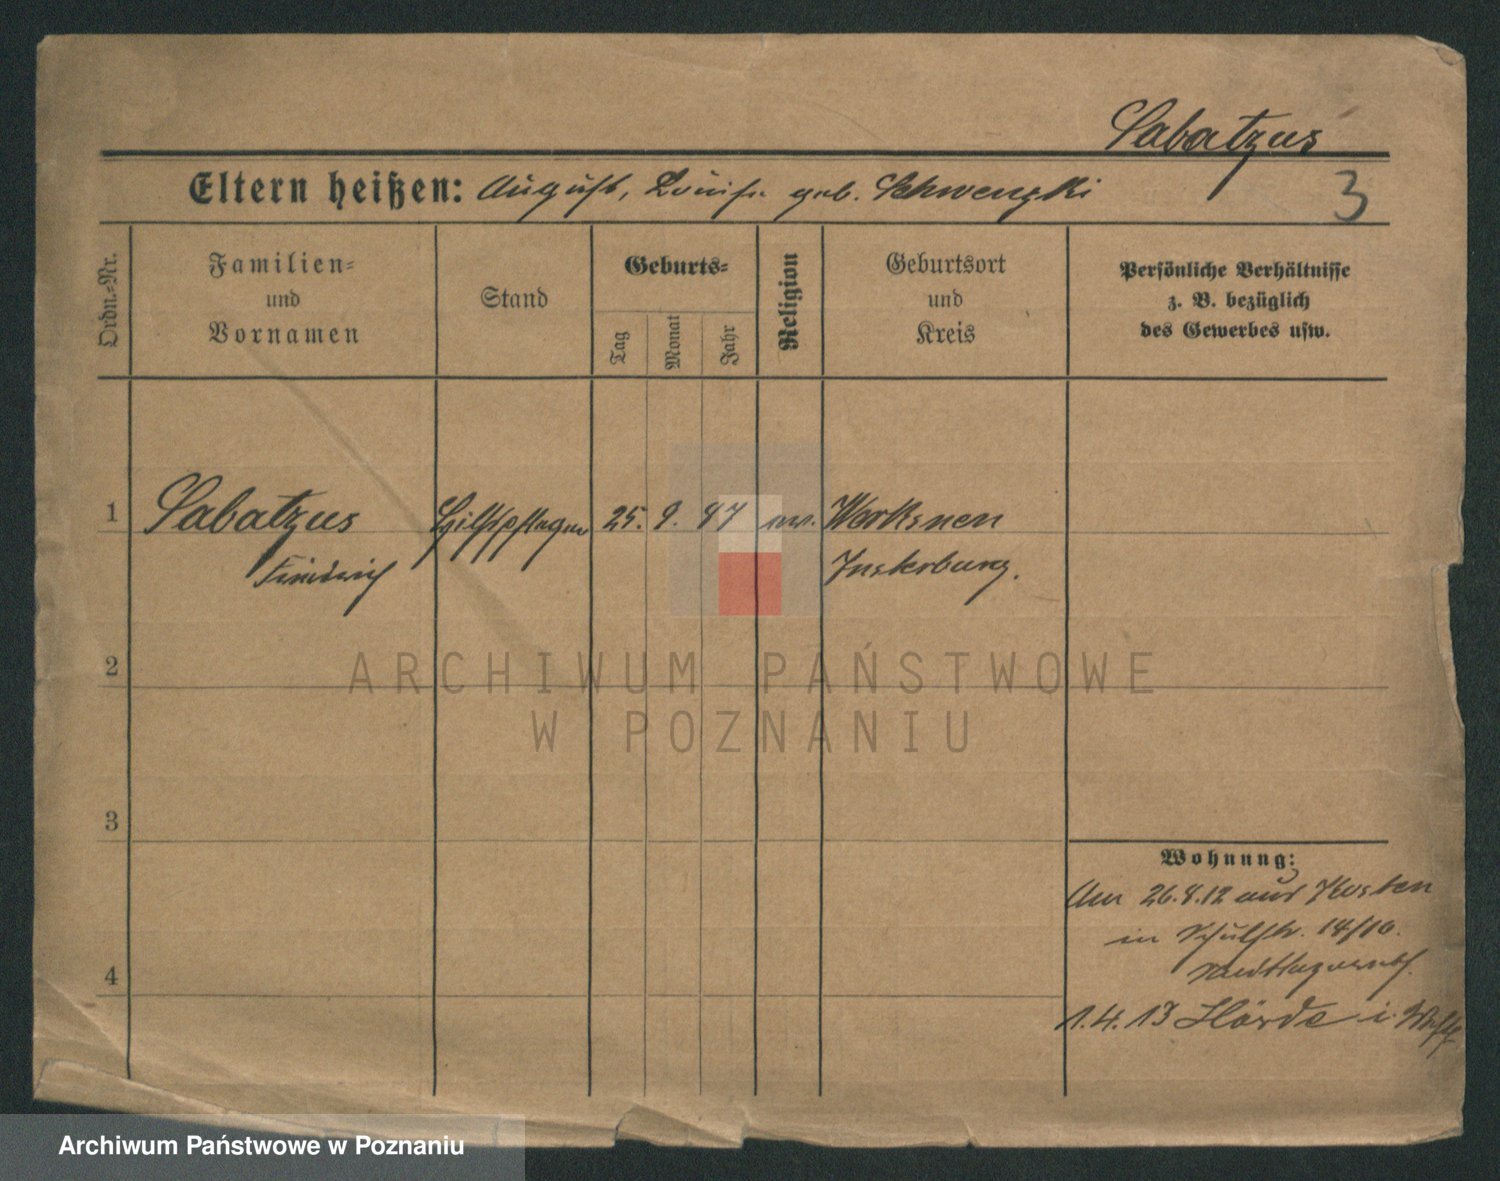 Sabatzus
Eltern heißen: August, Louise geb. Schwengki
3
Ordn.-Nr.
Familien-
und
Vornamen
Stand
Geburts-
Tag
Monat
Jahr
Religion
Geburtsort
und
Kreis
Persönliche Verhältnisse
z. B. bezüglich
des Gewerbes usw.
1 Sabatzus Hilfspfleger 25. 9. 87 ev. Werksnen
Friedrich Insterburg.
ARCHIWUM PAŃSTWOWE
W POZNANIU
2
3
4
Wohnung:
Am 26.8.12 aus Kosten
in Schulstr. 14/16.
1.4.13 Hörde i. Westf.
Archiwum Państwowe w Poznaniu